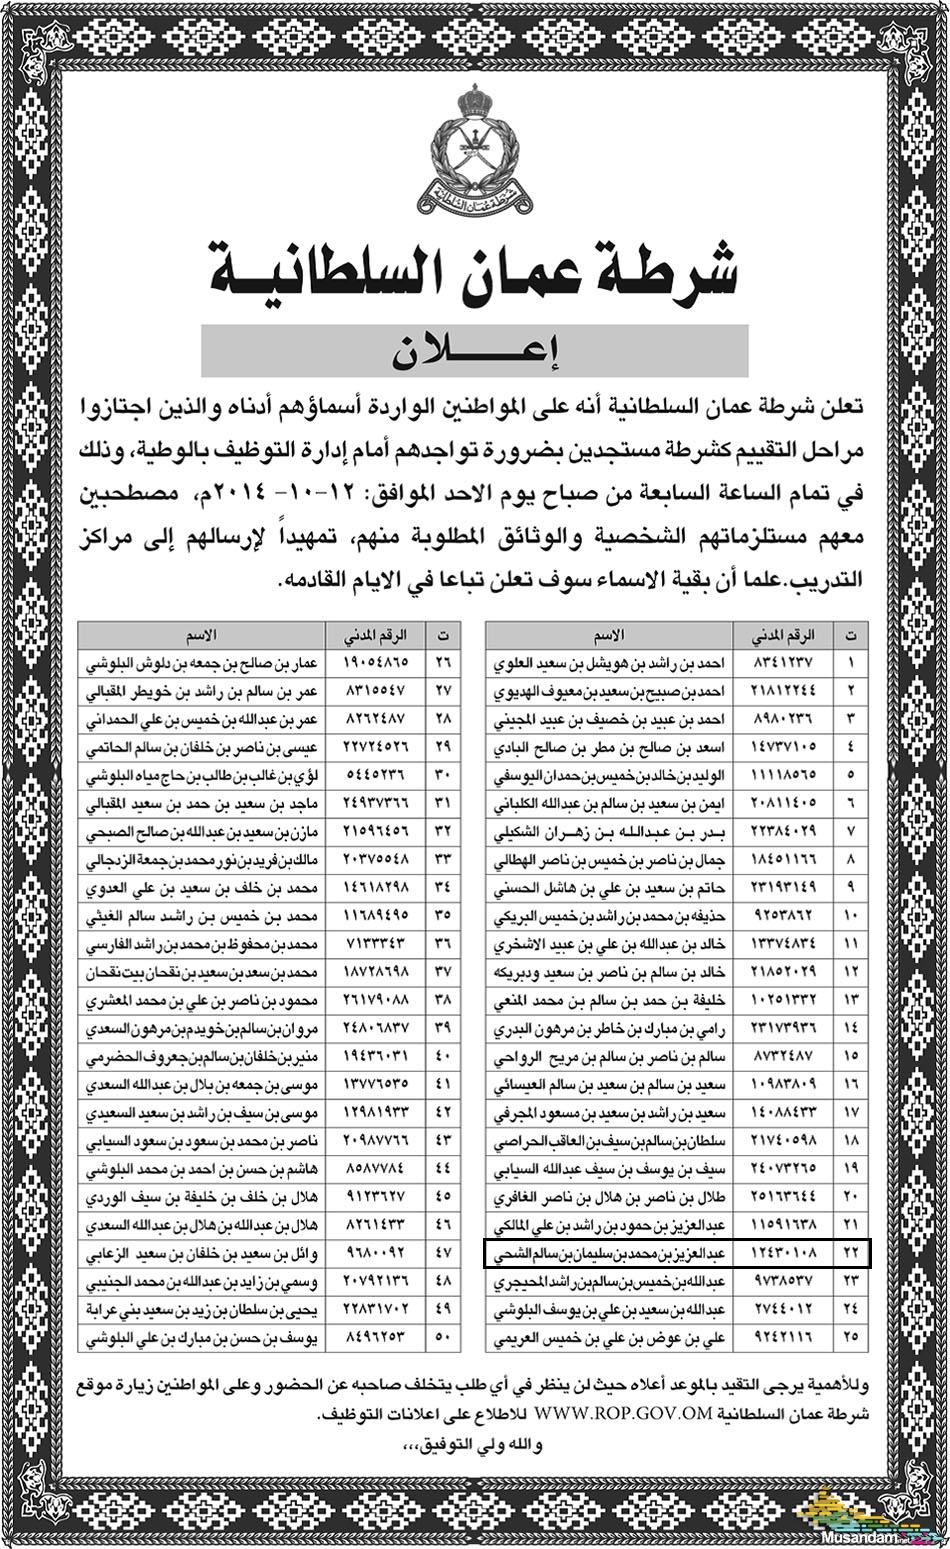 شرطة عمان السلطانية
شرطة عمان السلطانية
إعــــلان
تعلن شرطة عمان السلطانية أنه على المواطنين الواردة أسماؤهم أدناه والذين اجتازوا
مراحل التقييم كشرطة مستجدين بضرورة تواجدهم أمام إدارة التوظيف بالوطية، وذلك
في تمام الساعة السابعة من صباح يوم الاحد الموافق: ١٢-١٠- ٢٠١٤م، مصطحبين
معهم مستلزماتهم الشخصية والوثائق المطلوبة منهم، تمهيداً لإرسالهم إلى مراكز
التدريب.علما أن بقية الاسماء سوف تعلن تباعا في الايام القادمه.
ت الرقم المدني الاسم
١ ٨٣٤١٢٣٧ احمد بن راشد بن هويشل بن سعيد العلوي
٢ ٢١٨١٢٢٤٤ احمد بن صبيح بن سعيد بن معيوف الهديوي
٣ ٨٩٨٠٢٣٦ احمد بن عبيد بن خصيف بن عبيد المجيني
٤ ١٤٧٣٧١٠٥ اسعد بن صالح بن مطر بن صالح البادي
٥ ١١١١٨٥٦٥ الوليد بن خالد بن خميس بن حمدان اليوسفي
٦ ٢٠٨١١٤٠٥ ايمن بن سعيد بن سالم بن عبدالله الكلباني
٧ ٢٢٣٨٤٠٢٩ بدر بن عبدالله بن زهران الشكيلي
٨ ١٨٤٥١١٦٦ جمال بن ناصر بن خميس بن ناصر الهطالي
٩ ٢٣١٩٣١٤٩ حاتم بن سعيد بن علي بن هاشل الحسني
١٠ ٩٢٥٣٨٦٢ حذيفه بن محمد بن راشد بن خميس البريكي
١١ ١٣٣٧٤٨٣٤ خالد بن عبدالله بن علي بن عبيد الاشخري
١٢ ٢١٨٥٢٠٢٩ خالد بن سالم بن ناصر بن سعيد ودبريكه
١٣ ١٠٢٥١٣٣٢ خليفة بن حمد بن سالم بن محمد المنعي
١٤ ٢٣١٧٣٩٣٦ رامي بن مبارك بن خاطر بن مرهون البدري
١٥ ٨٧٣٢٤٨٧ سالم بن ناصر بن سالم بن مريح الرواحي
١٦ ١٠٩٨٣٨٠٩ سعيد بن سالم بن سعيد بن سالم العيسائي
١٧ ١٤٠٨٨٤٣٣ سعيد بن راشد بن سعيد بن مسعود المجرفي
١٨ ٢١٧٤٠٥٩٨ سلطان بن سالم بن سيف بن العاقب الحراصي
١٩ ٢٤٠٧٣٢٦٥ سيف بن يوسف بن سيف عبدالله السيابي
٢٠ ٢٥١٦٣٦٤٤ طلال بن ناصر بن هلال بن ناصر الغافري
٢١ ١١٥٩١٦٣٨ عبدالعزيز بن حمود بن راشد بن علي المالكي
٢٢ ١٢٤٣٠١٠٨ عبدالعزيز بن محمد بن سليمان بن سالم الشحي
٢٣ ٩٧٣٨٥٣٧ عبدالله بن خميس بن سالم بن راشد المحيجري
٢٤ ٢٧٤٤٠١٢ عبدالله بن سعيد بن علي بن يوسف البلوشي
٢٥ ٩٢٤٢١١٦ علي بن عوض بن علي بن خميس العريمي
ت الرقم المدني الاسم
٢٦ ١٩٠٥٤٨٦٥ عمار بن صالح بن جمعه بن دلوش البلوشي
٢٧ ٨٣١٥٥٤٧ عمر بن سالم بن راشد بن خويطر المقبالي
٢٨ ٨٢٦٢٤٨٧ عمر بن عبدالله بن خميس بن علي الحمداني
٢٩ ٢٢٧٢٤٥٢٦ عيسى بن ناصر بن خلفان بن سالم الحاتمي
٣٠ ٥٤٤٥٢٣٦ لؤي بن غالب بن طالب بن حاج مياه البلوشي
٣١ ٢٤٩٣٧٣٦٦ ماجد بن سعيد بن حمد بن سعيد المقبالي
٣٢ ٢١٥٩٦٤٥٦ مازن بن سعيد بن عبدالله بن صالح الصبحي
٣٣ ٢٠٣٧٥٥٤٨ مالك بن فريد بن نور محمد بن جمعة الزدجالي
٣٤ ١٤٦١٨٢٩٨ محمد بن خلف بن سعيد بن علي العدوي
٣٥ ١١٦٨٩٤٩٥ محمد بن خميس بن راشد سالم الغيثي
٣٦ ٧١٣٣٣٤٣ محمد بن محفوظ بن محمد بن راشد الفارسي
٣٧ ١٨٧٢٨٦٩٨ محمد بن سعد بن سعيد بن نقحان بيت نقحان
٣٨ ٢٦١٧٩٠٨٨ محمود بن ناصر بن علي بن محمد المعشري
٣٩ ٢٤٨٠٦٨٣٧ مروان بن سالم بن خويدم بن مرهون السعدي
٤٠ ١٩٤٣٦٠٣١ منير بن خلفان بن سالم بن جعروف الحضرمي
٤١ ١٣٧٧٦٥٣٥ موسى بن جمعه بن بلال بن عبدالله السعدي
٤٢ ١٢٩٨١٩٣٣ موسى بن سيف بن راشد بن سعيد السعيدي
٤٣ ٢٠٩٨٧٧٦٦ ناصر بن محمد بن سعود بن سعود السيابي
٤٤ ٨٥٨٧٧٨٤ هاشم بن حسن بن احمد بن محمد البلوشي
٤٥ ٩١٢٣٦٢٧ هلال بن خلف بن خليفة بن سيف الوردي
٤٦ ٨٢٦١٤٣٣ هلال بن عبدالله بن هلال بن عبدالله السعدي
٤٧ ٩٦٨٠٠٩٢ وائل بن سعيد بن خلفان بن سعيد الزعابي
٤٨ ٢٠٧٩٢١٣٦ وسمي بن زايد بن عبدالله بن محمد الجنيبي
٤٩ ٢٢٨٣١٧٠٢ يحيى بن سلطان بن زيد بن سعيد بني عرابة
٥٠ ٨٤٩٦٢٥٣ يوسف بن حسن بن مبارك بن علي البلوشي
وللأهمية يرجى التقيد بالموعد أعلاه حيث لن ينظر في أي طلب يتخلف صاحبه عن الحضور وعلى المواطنين زيارة موقع
شرطة عمان السلطانية WWW.ROP.GOV.OM للاطلاع على اعلانات التوظيف.
والله ولي التوفيق،،،
Musandam.net